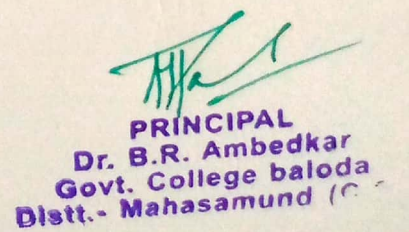 PRINCIPAL
Dr. B.R. Ambedkar
Govt. College baloda
Distt.- Mahasamund (C